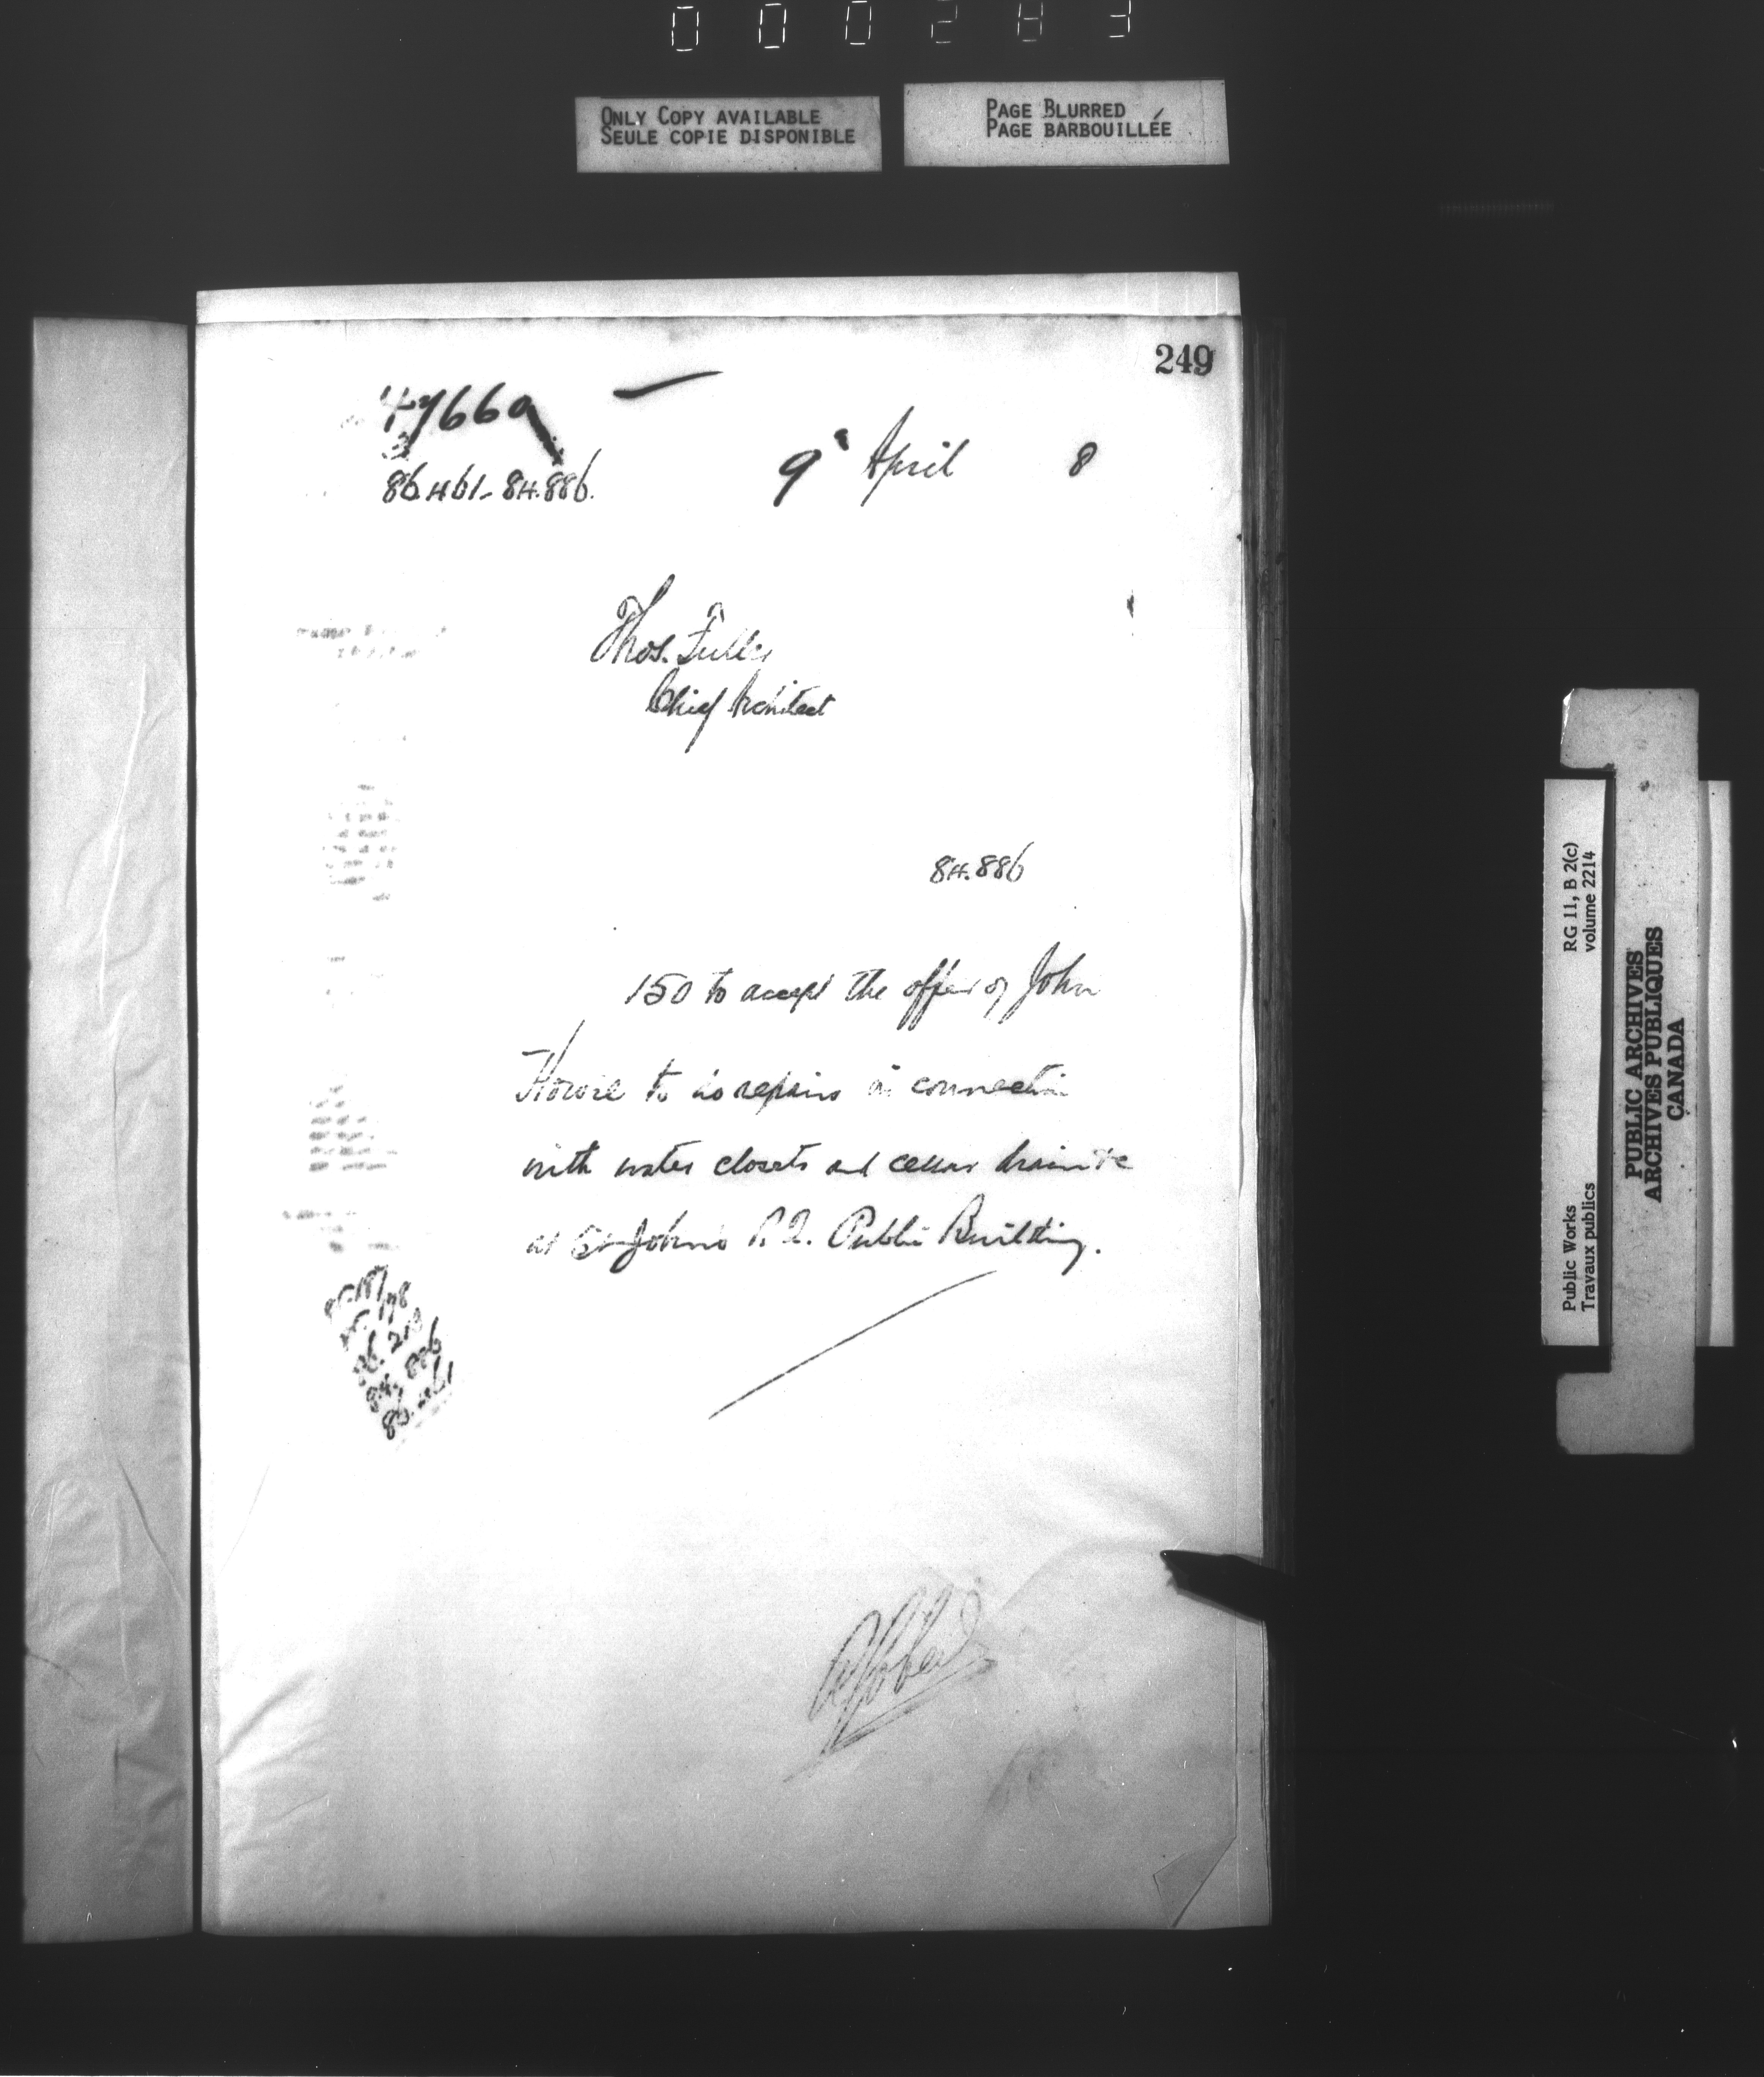 000283
ONLY COPY AVAILABLE
SEULE COPIE DISPONIBLE
PAGE BLURRED
PAGE BARBOUILLÉE
249
47660
3
86.461-84.886.
9 April 8
Thos. Fuller
Chief Architect
84.886
150 to accept the offer of John
Howie to do repairs in connection
with water closets and cellar drain &c
at St Johns P.Q. Public Building.
84. 886
86. 461
RG 11, B 2(c)
volume 2214
Public Works
Travaux publics
PUBLIC ARCHIVES
ARCHIVES PUBLIQUES
CANADA